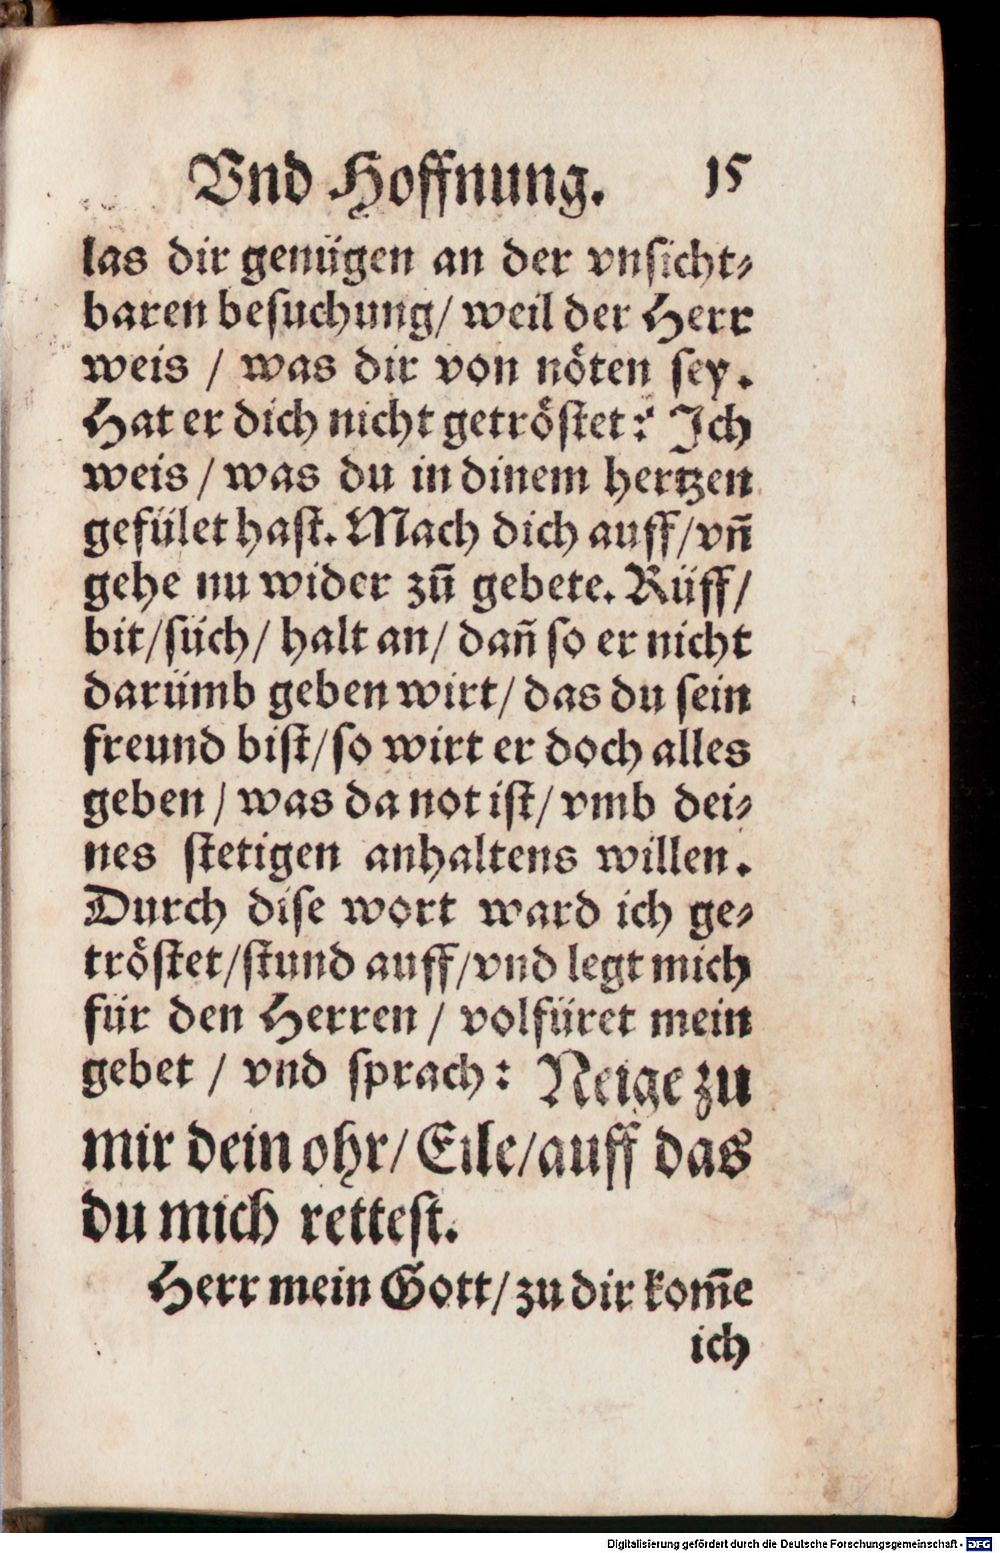 Vnd Hoffnung. 15
las dir genügen an der vnsicht⸗
baren besuchung/ weil der Herr
weis / was dir von nöten sey.
Hat er dich nicht getröstet? Ich
weis / was du in dinem hertzen
gefület hast. Mach dich auff/vñ
gehe nu wider zū gebete. Rüff/
bit/süch/ halt an/ dañ so er nicht
darümb geben wirt/ das du sein
freund bist/so wirt er doch alles
geben / was da not ist/ vmb dei⸗
nes stetigen anhaltens willen.
Durch dise wort ward ich ge⸗
tröstet/stund auff/vnd legt mich
für den Herren / volfüret mein
gebet / vnd sprach: Neige zu
mir dein ohr/ Eile/auff das
du mich rettest.
Herr mein Gott/ zu dir kom̄e
ich
Digitalisierung gefördert durch die Deutsche Forschungsgemeinschaft - DFG